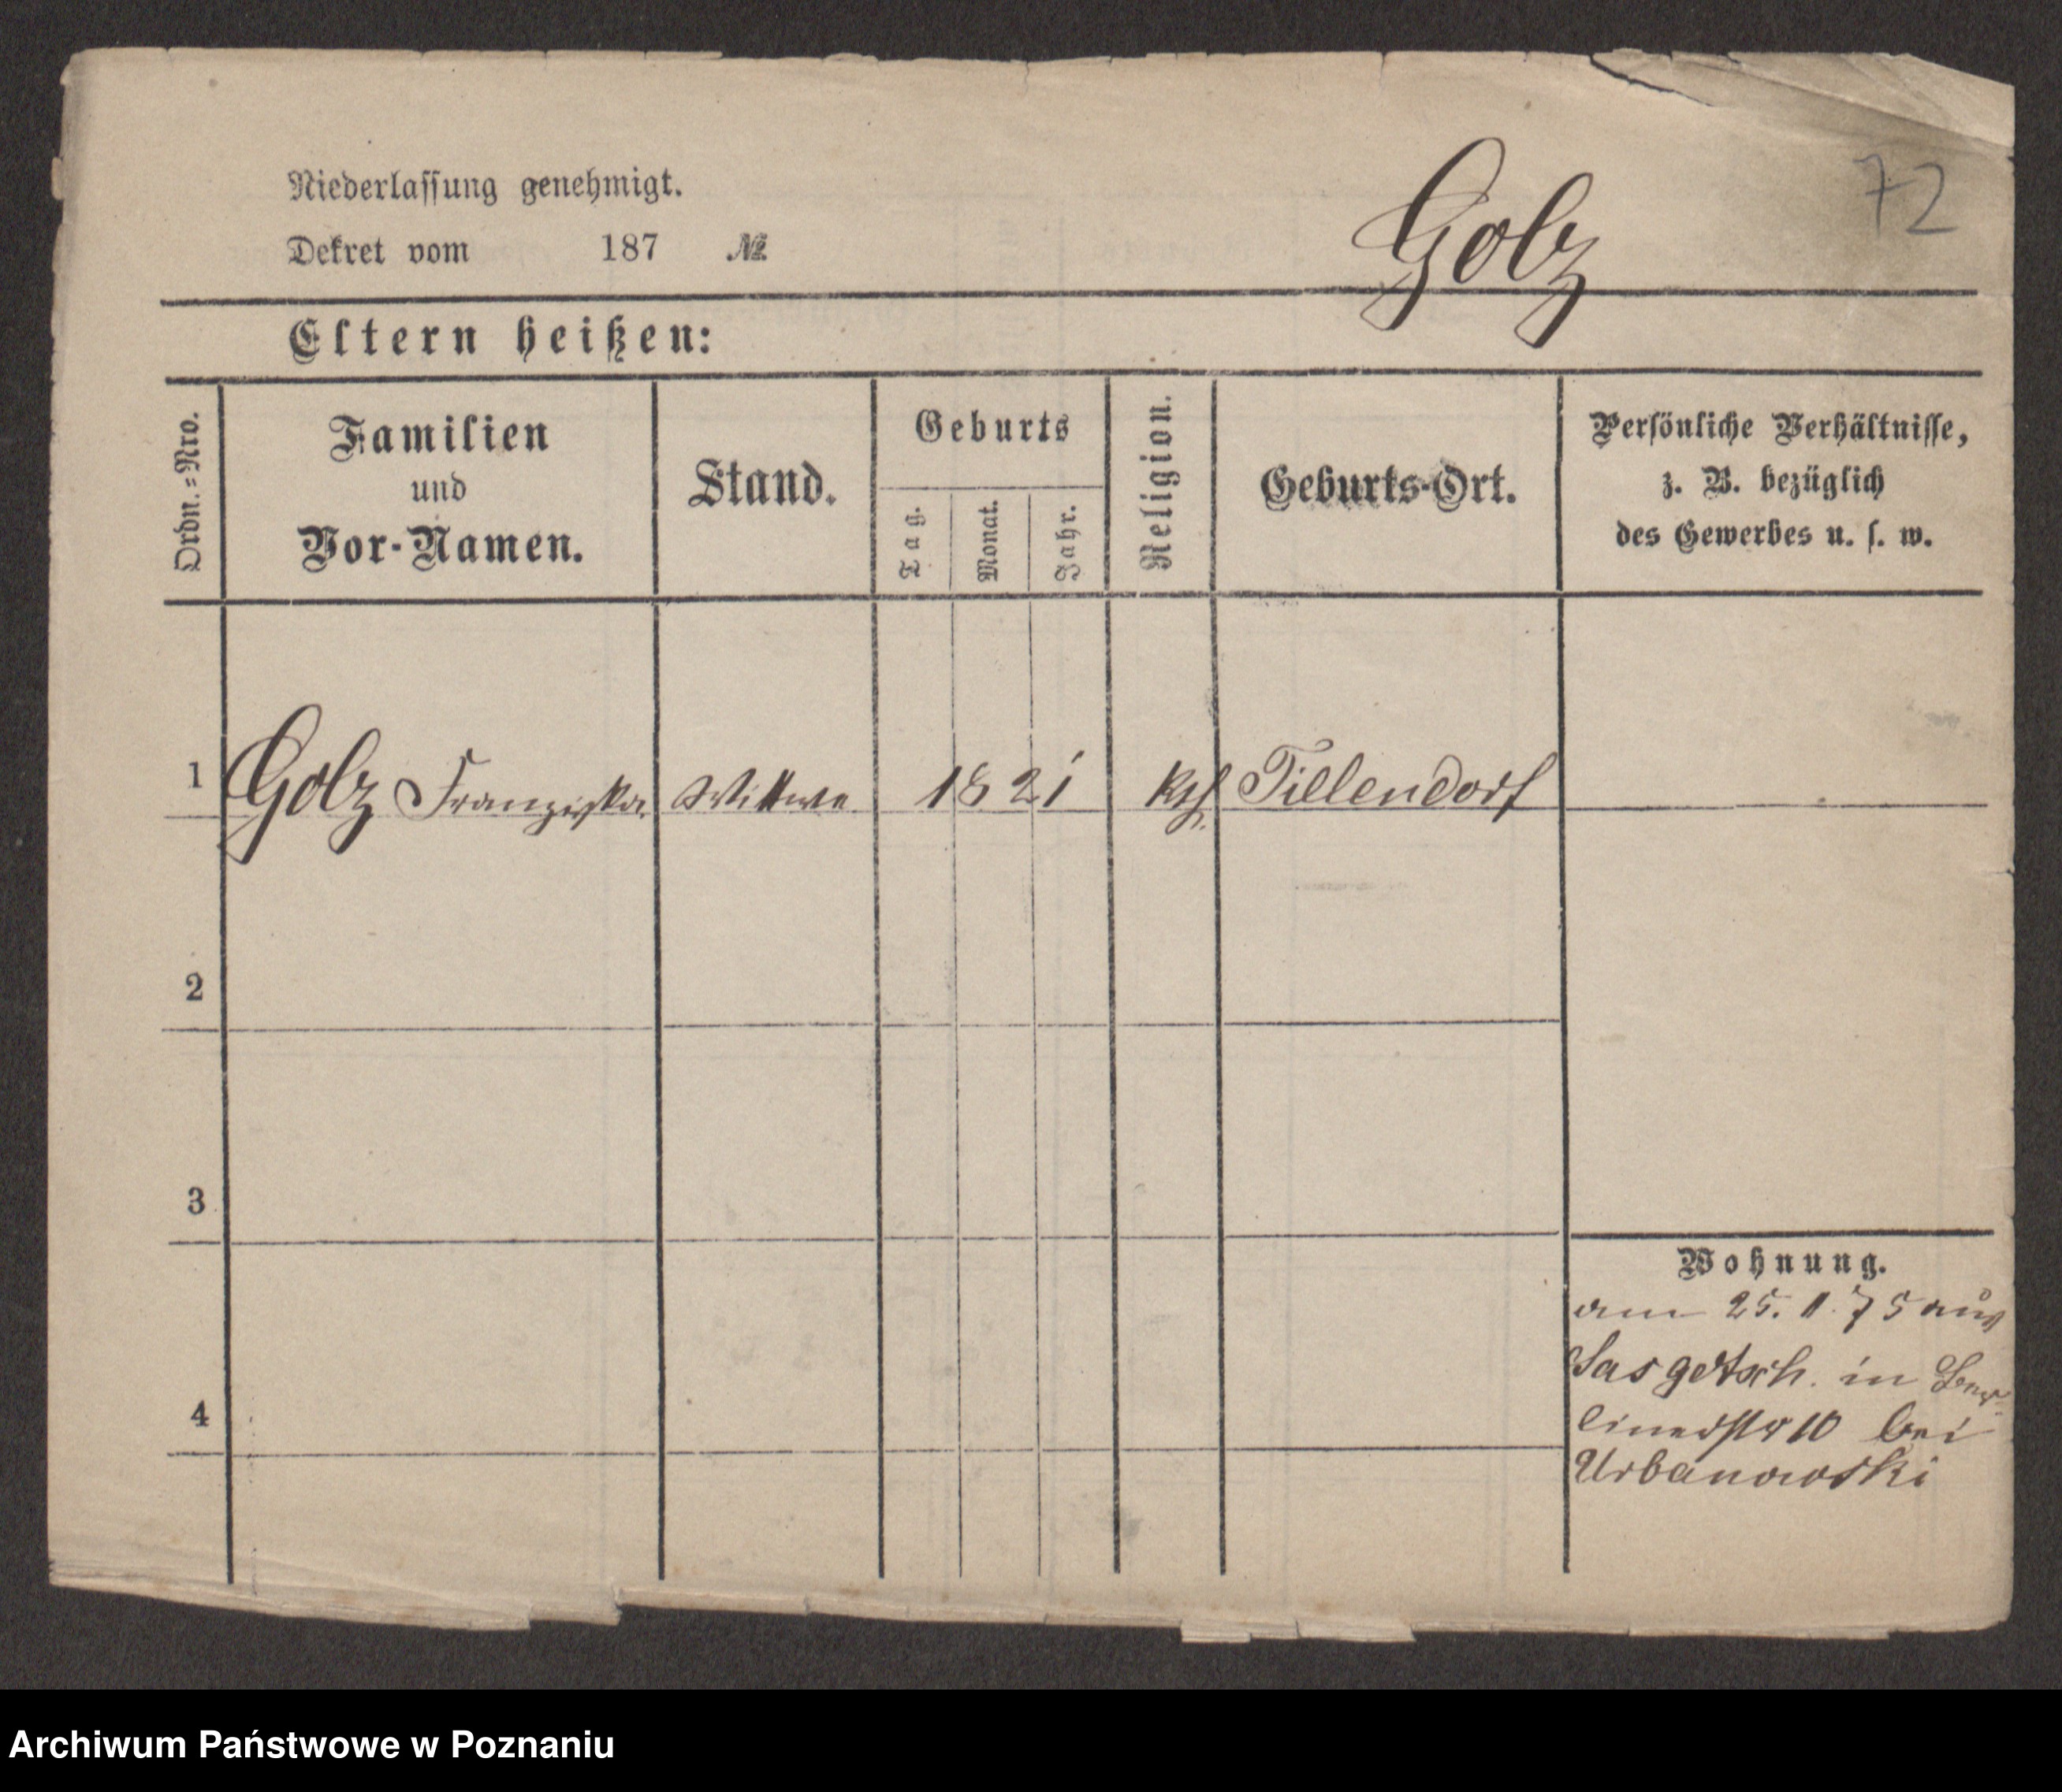 72
Golz
Niederlassung genehmigt.
Dekret vom 187 №
Eltern heißen:
Ordn.=Nro.
Familien
und
Vor-Namen.
Stand.
Geburts
Tag.
Monat.
Jahr.
Religion.
Geburts-Ort.
Persönliche Verhältnisse,
z. B. bezüglich
des Gewerbes u. s. w.
1 Golz Franziska Wittwe 1821 kth Tillendorf
2
3
4
Wohnung.
am 25. 11. 75 aus
in Ber-
linerstr 10 bei
Urbanowski
Archiwum Państwowe w Poznaniu